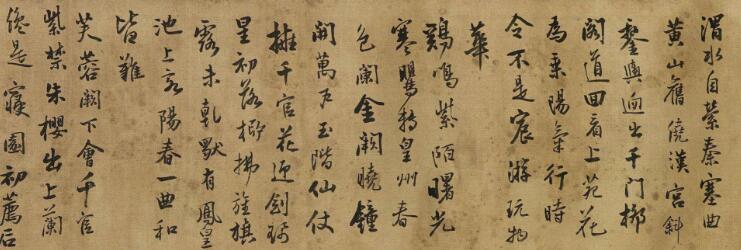 渭水自縈秦塞曲
黄山舊繞漢宮斜
鑾輿迥出千門柳
閣道回看上苑花
為乗陽氣行時
令不是宸游玩物
華
鷄鳴紫陌曙光
寒鶯囀皇州春
色闌金闕曉鐘
開萬户玉階仙仗
擁千官花迎劍珮
星初落柳拂旌旗
露未乾獨有鳳皇
池上客陽春一曲和
皆難
芙蓉闕下會千官
紫禁朱櫻出上蘭
纔是寢園初薦后